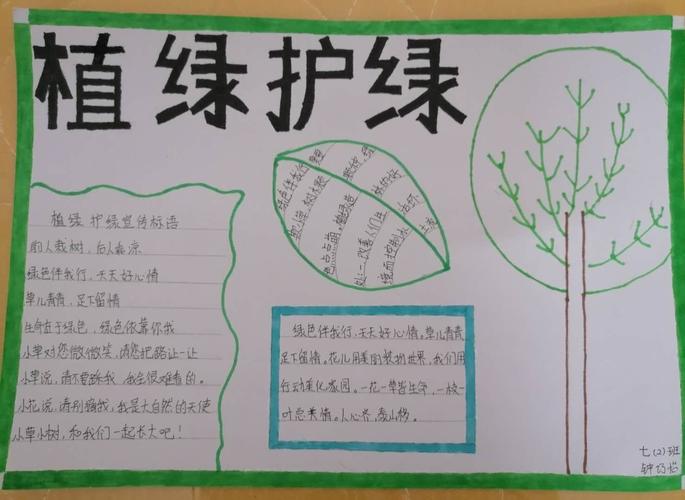 植绿护绿
植绿 护绿宣传标语
前人栽树，后人乘凉
绿色伴我行，天天好心情
草儿青青，足下留情
生命在于绿色，绿色依靠你我
小草对您微微笑，请您把路让一让
小草说，请不要踩我，我会很难看的。
小花说，请别摘我，我是大自然的天使
小草小树，和我们一起长大吧！
绿色伴我行
绿色伴我行，天天好心情。草儿青青
足下留情。花儿用美丽装扮世界，我们用
行动美化家园。一花一草皆生命，一枝一
叶总关情。人心齐，泰山移。
七（2）班